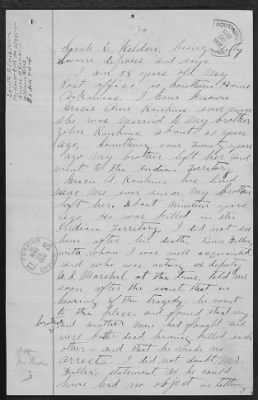 Sarah E. Weldon, being duly
sworn deposes and says:
I am 58 years old, my
post office is Southern Home
Arkansas. I have known
Gracie Ann Rankins ever since
she was married to my brother
John Rankins about 30 years
ago. Something over twenty years
ago my brother left her and
went to the Indian Territory.
Gracie A. Rankins has lived
near me ever since my brother
left her. About nineteen years
ago he was killed in the
Indian Territory. I did not see
him after his death. Dan Fuller
with whom I was well acquainted
and who was acting as deputy
U.S. Marshal at the time, told me
soon after the event that on
hearing of the tragedy he went
to the place and found that my
brother and another man had fought and
were both dead, having killed each
other, and that he made no
arrest. I did not doubt Mr.
Fuller's statement as he could
have had no object in telling